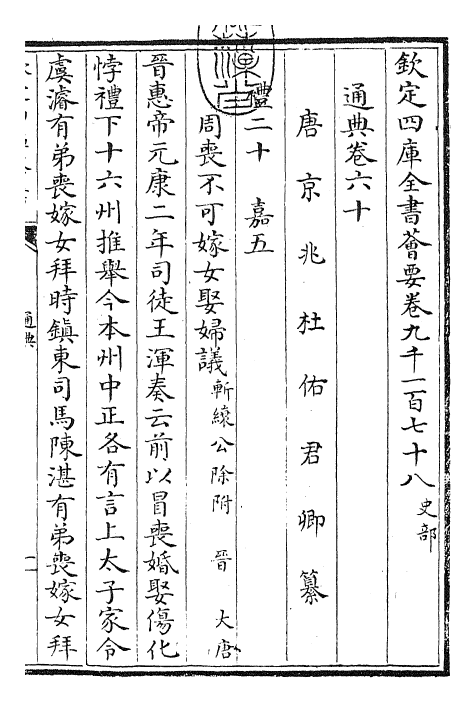 欽定四庫全書薈要卷九千一百七十八 史部
通典卷六十
唐京兆杜佑君卿纂
禮二十 嘉五
周喪不可嫁女娶婦議 斬縗公除附 晉 大唐
晉惠帝元康二年司徒王渾奏云前以冒喪婚娶傷化
悖禮下十六州推舉今本州中正各有言上太子家令
虞濬有弟喪嫁女拜時鎮東司馬陳湛有弟喪嫁女拜
通典